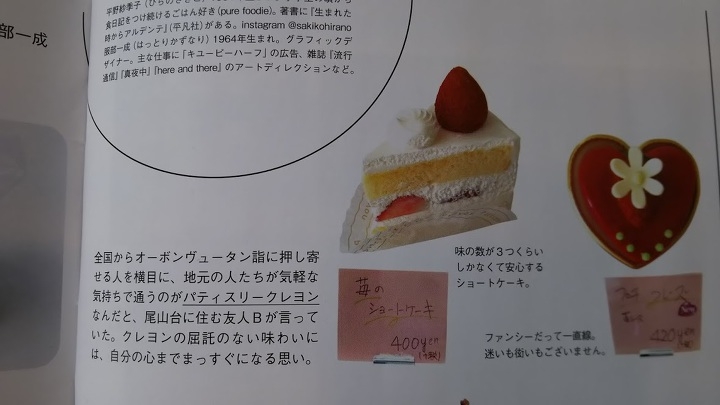 部一成
食日記をつけ続けるごはん好き(pure foodie)。著書に『生まれた
時からアルデンテ』(平凡社)がある。instagram @sakikohirano
服部一成(はっとりかずなり)1964年生まれ。グラフィックデ
ザイナー。主な仕事に「キユーピーハーフ」の広告、雑誌『流行
通信』『真夜中』『here and there』のアートディレクションなど。
全国からオーボンヴュータン詣に押し寄
せる人を横目に、地元の人たちが気軽な
気持ちで通うのがパティスリークレヨン
なんだと、尾山台に住む友人Bが言って
いた。クレヨンの屈託のない味わいに
は、自分の心までまっすぐになる思い。
味の数が3つくらい
しかなくて安心する
ショートケーキ。
苺の
ショートケーキ
400yen
(税込)
ファンシーだって一直線。
迷いも衒いもございません。
420yen